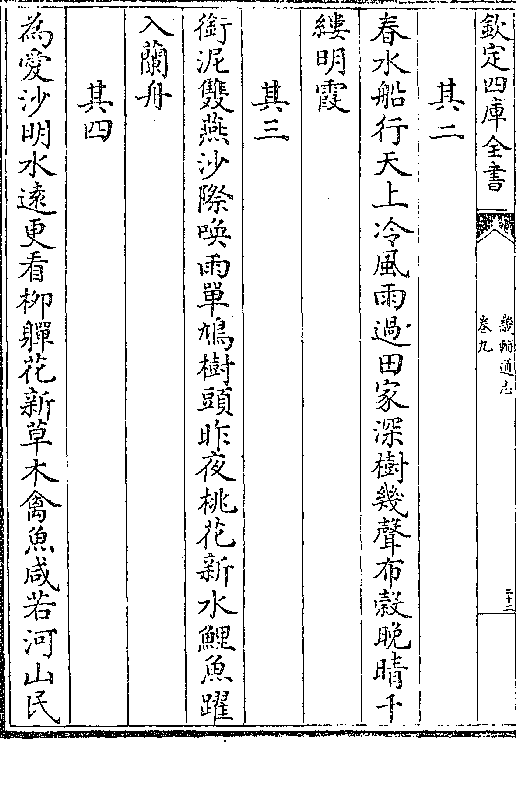 欽定四庫全書
畿輔通志
卷九
二十二
其二
春水船行天上冷風雨過田家深樹幾聲布穀晚晴千
縷明霞
其三
銜泥雙燕沙際喚雨單鳩樹頭昨夜桃花新水鯉魚躍
入蘭舟
其四
為愛沙明水遠更看栁嚲花新草木禽魚咸若河山民